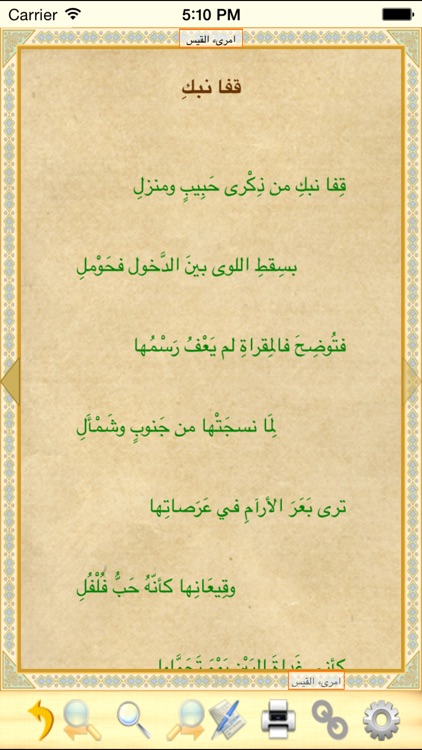 Carrier 5:10 PM
امرىء القيس
قفا نبكِ
قِفا نبكِ من ذِكْرى حَبِيبٍ ومنزلِ
بسِقطِ اللوى بينَ الدَّخول فحَوْملِ
فتُوضِحَ فالمِقراةِ لم يَعْفُ رَسْمُها
لِمَا نسجَتْها من جَنوبٍ وشَمْأَلِ
ترى بَعَرَ الأرآمِ في عَرَصاتِها
وقِيعَانِها كأنّهُ حَبُّ فُلْفُلِ
كأني غَداةَ البَيْنِ يَوْمَ تَحَمَّلوا
امرىء القيس